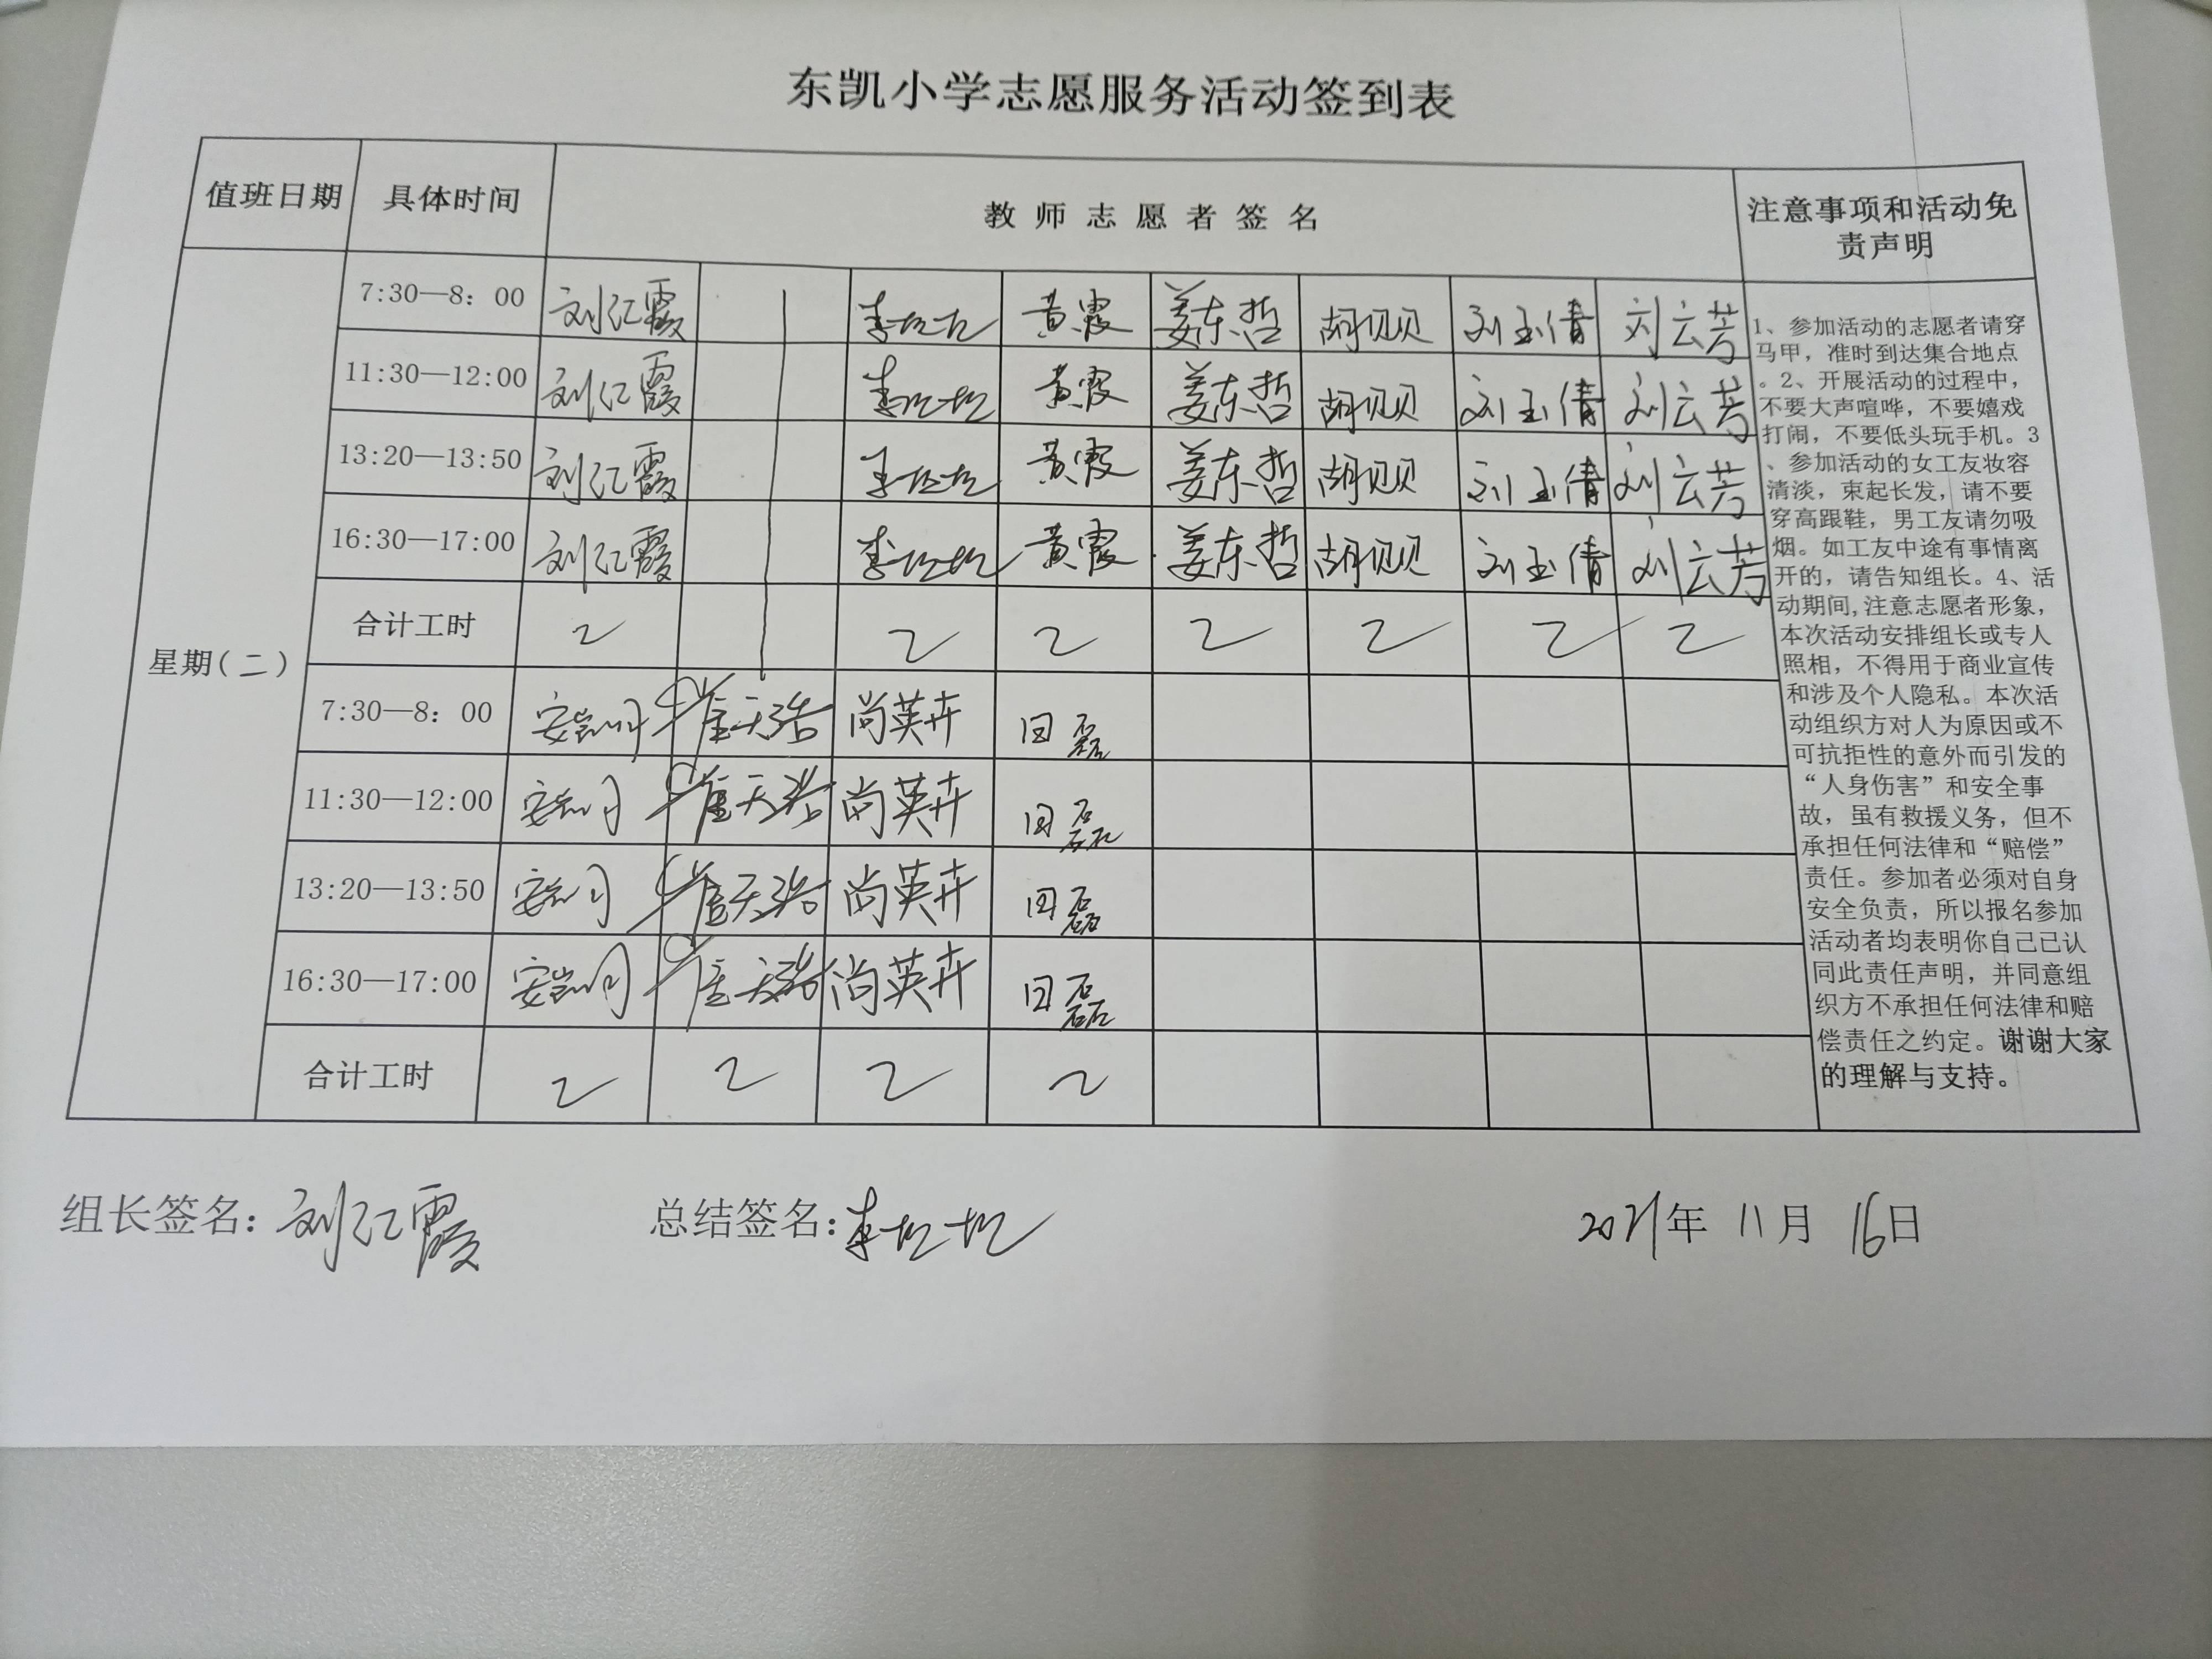 东凯小学志愿服务活动签到表
值班日期 具体时间 教师志愿者签名 注意事项和活动免
责声明
星期(二)
7:30—8：00 刘红霞 黄霞 姜东哲 胡贝贝 刘玉倩 刘云芳
11:30—12:00 刘红霞 黄霞 姜东哲 胡贝贝 刘玉倩 刘云芳
13:20—13:50 刘红霞 黄霞 姜东哲 胡贝贝 刘玉倩 刘云芳
16:30—17:00 刘红霞 黄霞 姜东哲 胡贝贝 刘玉倩 刘云芳
合计工时 2 2 2 2 2 2 2
7:30—8：00 崔天浩 尚英卉 回磊
11:30—12:00 崔天浩 尚英卉 回磊
13:20—13:50 崔天浩 尚英卉 回磊
16:30—17:00 崔天浩 尚英卉 回磊
合计工时 2 2 2 2
1、参加活动的志愿者请穿
马甲，准时到达集合地点
。2、开展活动的过程中，
不要大声喧哗，不要嬉戏
打闹，不要低头玩手机。3
、参加活动的女工友妆容
清淡，束起长发，请不要
穿高跟鞋，男工友请勿吸
烟。如工友中途有事情离
开的，请告知组长。4、活
动期间,注意志愿者形象，
本次活动安排组长或专人
照相，不得用于商业宣传
和涉及个人隐私。本次活
动组织方对人为原因或不
可抗拒性的意外而引发的
“人身伤害”和安全事
故，虽有救援义务，但不
承担任何法律和“赔偿”
责任。参加者必须对自身
安全负责，所以报名参加
活动者均表明你自己已认
同此责任声明，并同意组
织方不承担任何法律和赔
偿责任之约定。谢谢大家
的理解与支持。
组长签名：刘红霞 总结签名： 2021年 11月 16日